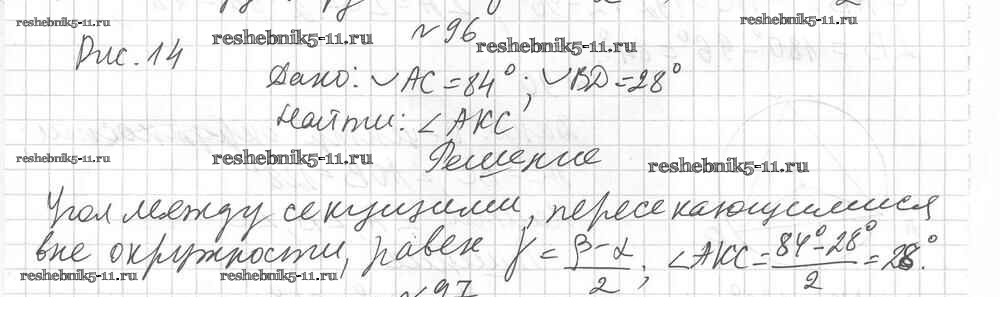 reshebnik5-11.ru
№96
reshebnik5-11.ru
reshebnik5-11.ru
reshebnik5-11.ru
Рис. 14
Дано: ◡ AC = 84°; ◡ BD = 28°
Найти: ∠ AKC
reshebnik5-11.ru
reshebnik5-11.ru
Решение
reshebnik5-11.ru
Угол между секущими, пересекающимися
вне окружности, равен γ = (β-α)/2; ∠AKC = (84°-28°)/2 = 28°.
reshebnik5-11.ru
reshebnik5-11.ru
№97